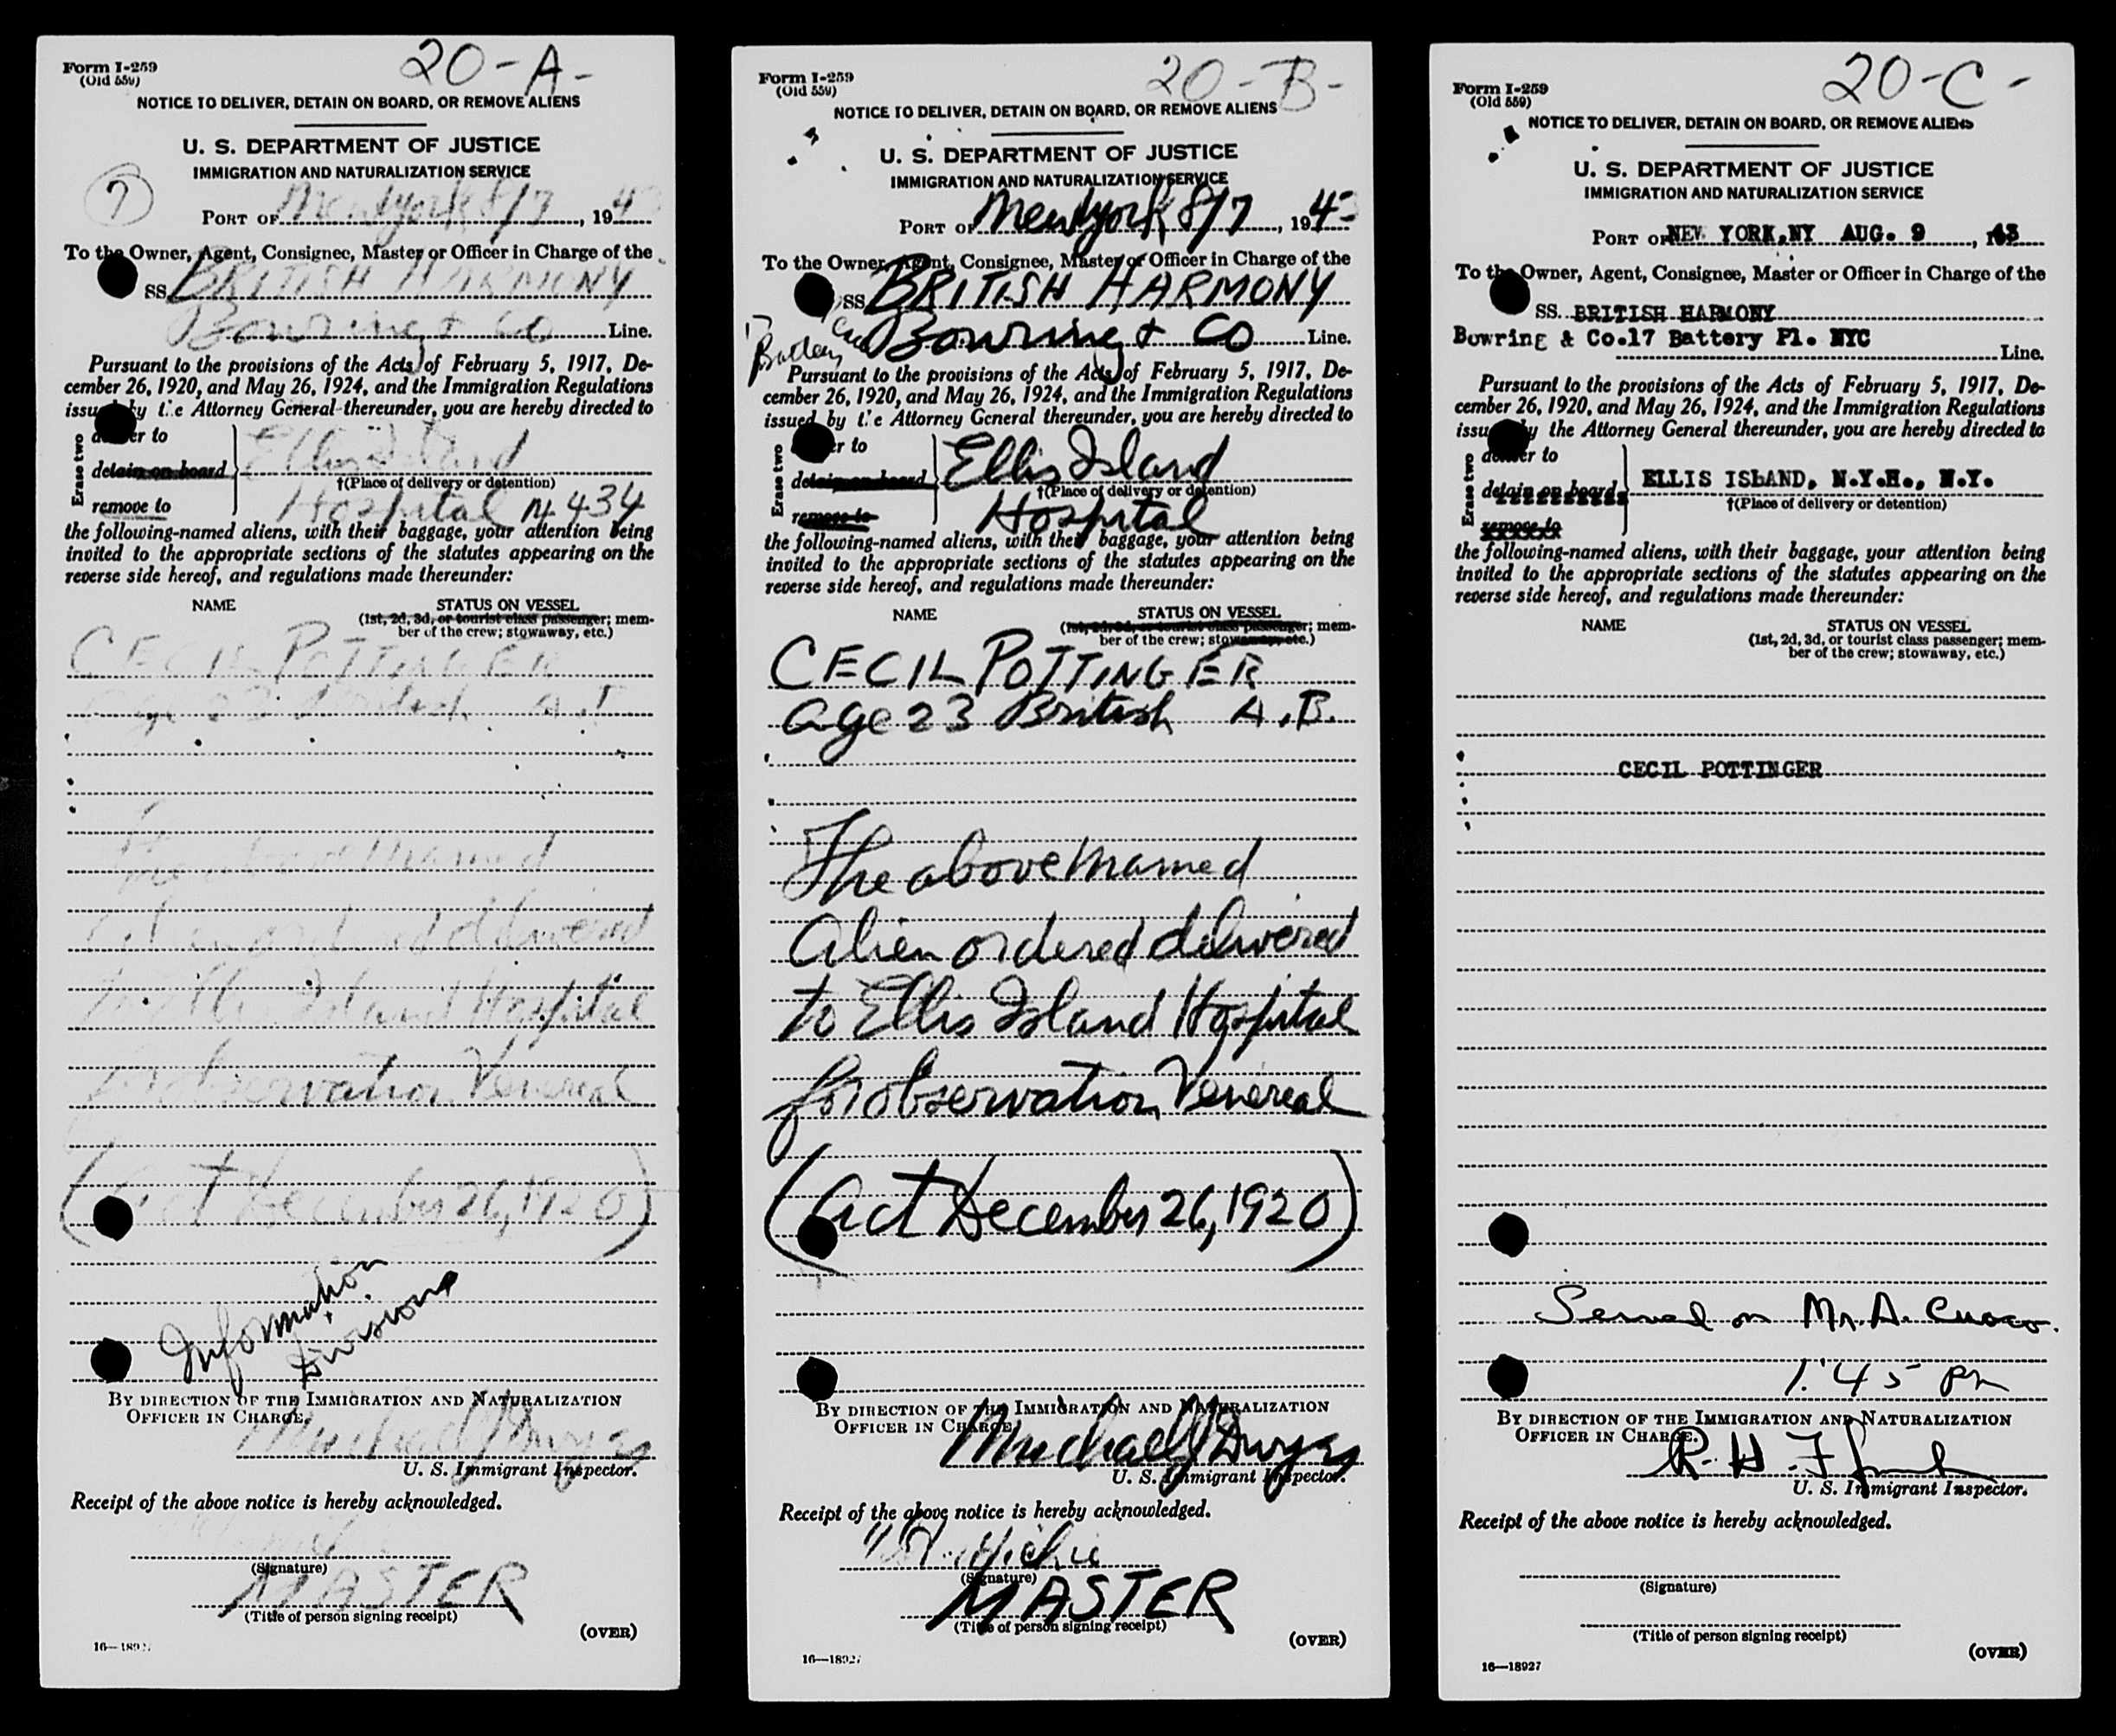 20-A-
Form I-259
(Old 559)
NOTICE TO DELIVER, DETAIN ON BOARD, OR REMOVE ALIENS
U. S. DEPARTMENT OF JUSTICE
IMMIGRATION AND NATURALIZATION SERVICE
PORT OF Newyork 8/7, 194
To the Owner, Agent, Consignee, Master or Officer in Charge of the
SS BRITISH HARMONY
Bowring & Co Line.
Pursuant to the provisions of the Acts of February 5, 1917, De-
cember 26, 1920, and May 26, 1924, and the Immigration Regulations
issued by the Attorney General thereunder, you are hereby directed to
Erase two
deliver to
detain on board
Ellis Island
†(Place of delivery or detention)
remove to
Hospital N 434
the following-named aliens, with their baggage, your attention being
invited to the appropriate sections of the statutes appearing on the
reverse side hereof, and regulations made thereunder:
NAME STATUS ON VESSEL
(1st, 2d, 3d, or tourist class passenger; mem-
ber of the crew; stowaway, etc.)
CECIL POTTINGER
age 23 British A.B
The above named
Alien ordered delivered
to Ellis Island Hospital
for observation Venereal
(Act December 26, 1920)
Information
Divisions
BY DIRECTION OF THE IMMIGRATION AND NATURALIZATION
OFFICER IN CHARGE.
Michael J Dwyer
U. S. Immigrant Inspector.
Receipt of the above notice is hereby acknowledged.
(Signature)
MASTER
(Title of person signing receipt)
(OVER)
20-B-
Form I-259
(Old 559)
NOTICE TO DELIVER, DETAIN ON BOARD, OR REMOVE ALIENS
U. S. DEPARTMENT OF JUSTICE
IMMIGRATION AND NATURALIZATION SERVICE
PORT OF Newyork 8/7, 1943
To the Owner, Agent, Consignee, Master or Officer in Charge of the
SS BRITISH HARMONY
17 Battery
Bowring & Co Line.
Pursuant to the provisions of the Acts of February 5, 1917, De-
cember 26, 1920, and May 26, 1924, and the Immigration Regulations
issued by the Attorney General thereunder, you are hereby directed to
Erase two
deliver to
detain on board
Ellis Island
†(Place of delivery or detention)
remove to
Hospital
the following-named aliens, with their baggage, your attention being
invited to the appropriate sections of the statutes appearing on the
reverse side hereof, and regulations made thereunder:
NAME STATUS ON VESSEL
(1st, 2d, 3d, or tourist class passenger; mem-
ber of the crew; stowaway, etc.)
CECIL POTTINGER
age 23 British A.B.
The above named
Alien ordered delivered
to Ellis Island Hospital
for observation Venereal
(Act December 26, 1920)
BY DIRECTION OF THE IMMIGRATION AND NATURALIZATION
OFFICER IN CHARGE.
Michael J Dwyer
U. S. Immigrant Inspector.
Receipt of the above notice is hereby acknowledged.
(Signature)
MASTER
(Title of person signing receipt)
(OVER)
20-C-
Form I-259
(Old 559)
NOTICE TO DELIVER, DETAIN ON BOARD, OR REMOVE ALIENS
U. S. DEPARTMENT OF JUSTICE
IMMIGRATION AND NATURALIZATION SERVICE
PORT OF NEW YORK,NY AUG. 9, 43
To the Owner, Agent, Consignee, Master or Officer in Charge of the
SS. BRITISH HARMONY
Bowring & Co.17 Battery Pl. NYC
Line.
Pursuant to the provisions of the Acts of February 5, 1917, De-
cember 26, 1920, and May 26, 1924, and the Immigration Regulations
issued by the Attorney General thereunder, you are hereby directed to
Erase two
deliver to
detain on board
ELLIS ISLAND, N.Y.H., N.Y.
†(Place of delivery or detention)
remove to
the following-named aliens, with their baggage, your attention being
invited to the appropriate sections of the statutes appearing on the
reverse side hereof, and regulations made thereunder:
NAME STATUS ON VESSEL
(1st, 2d, 3d, or tourist class passenger; mem-
ber of the crew; stowaway, etc.)
CECIL POTTINGER
Served on Mr. A. Cuoco.
1:45 Pm
BY DIRECTION OF THE IMMIGRATION AND NATURALIZATION
OFFICER IN CHARGE.
R. H. F
U. S. Immigrant Inspector.
Receipt of the above notice is hereby acknowledged.
(Signature)
(Title of person signing receipt)
(OVER)
16—18927